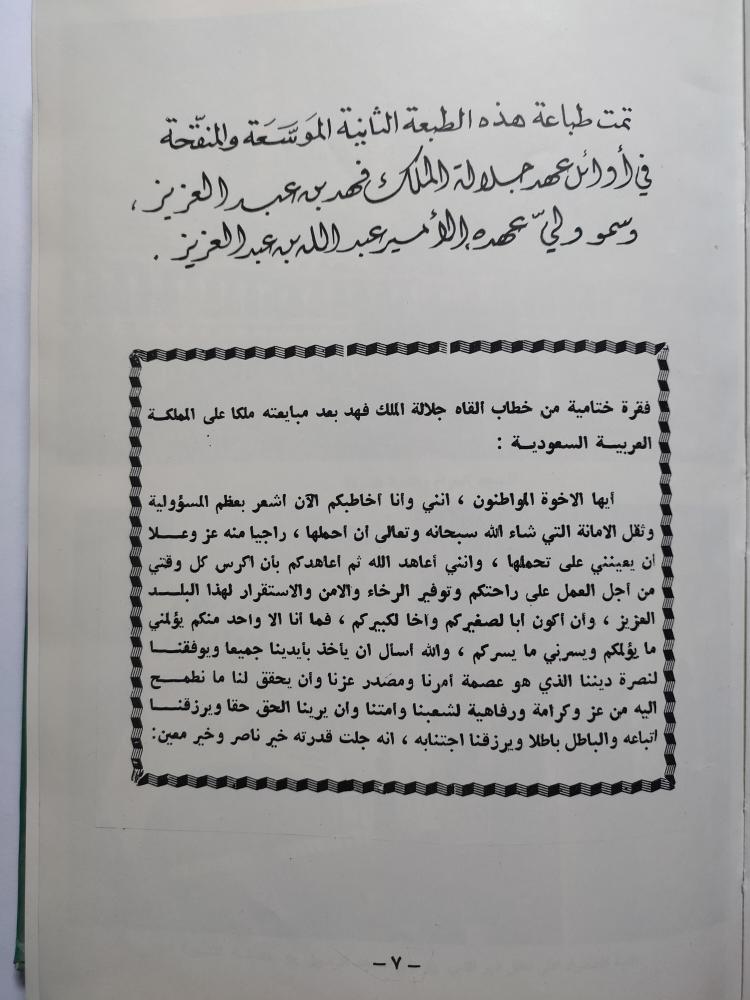 تمت طباعة هذه الطبعة الثانية الموَسَّعَة والمنقّحة
في أوائل عهد جلالة الملك فهد بن عبد العزيز ،
وسمو وليّ عهده الأمير عبد الله بن عبد العزيز .
فقرة ختامية من خطاب القاه جلالة الملك فهد بعد مبايعته ملكا على المملكـة
العربيــة السعوديــة :
أيها الاخوة المواطنون ، انني وأنا أخاطبكم الآن اشعر بعظم المسؤولية
وثقل الامانة التي شاء الله سبحانه وتعالى أن أحملها ، راجيا منه عز وعــلا
أن يعينني على تحملها ، وانني أعاهد الله ثم أعاهدكم بأن اكرس كل وقتي
من أجل العمل على راحتكم وتوفير الرخاء والامن والاستقرار لهذا البلــد
العزيز ، وأن أكون أبا لصغيركم وأخا لكبيركم ، فما انا الا واحد منكم يؤلمني
ما يؤلمكم ويسرني ما يسركم ، والله أسال ان يأخذ بأيدينا جميعا ويوفقنــا
لنصرة ديننا الذي هو عصمة أمرنا ومصدر عزنا وأن يحقق لنا ما نطمــح
اليه من عز وكرامة ورفاهية لشعبنا وامتنا وان يرينا الحق حقا ويرزقنــا
اتباعه والباطل باطلا ويرزقنا اجتنابه ، انه جلت قدرته خير ناصر وخير معين:
– ٧ –